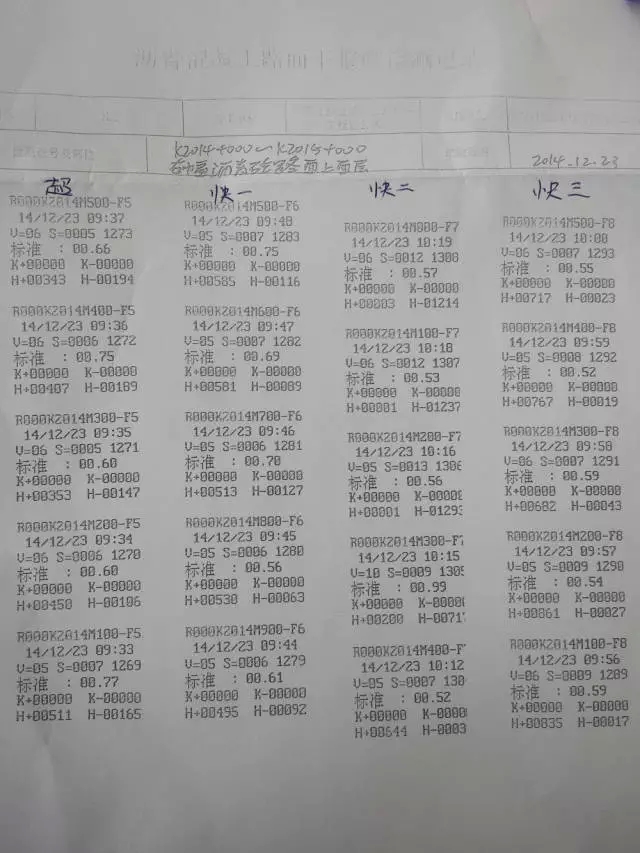 K2014+000~K2015+000
沥青砼路面上面层
2014.12.23
超
R000K2014M500-F5
14/12/23 09:37
V=06 S=0005 1273
标准 :00.66
K+00000 K-00000
H+00343 H-00194
R000K2014M400-F5
14/12/23 09:36
V=06 S=0006 1272
标准 :00.75
K+00000 K-00000
H+00407 H-00189
R000K2014M300-F5
14/12/23 09:35
V=05 S=0005 1271
标准 :00.60
K+00000 K-00000
H+00353 H-00147
R000K2014M200-F5
14/12/23 09:34
V=06 S=0006 1270
标准 :00.60
K+00000 K-00000
H+00450 H-00106
R000K2014M100-F5
14/12/23 09:33
V=05 S=0007 1269
标准 :00.77
K+00000 K-00000
H+00511 H-00165
快一
R000K2014M500-F6
14/12/23 09:48
V=05 S=0007 1283
标准 :00.75
K+00000 K-00000
H+00585 H-00116
R000K2014M600-F6
14/12/23 09:47
V=05 S=0007 1282
标准 :00.69
K+00000 K-00000
H+00581 H-00089
R000K2014M700-F6
14/12/23 09:46
V=05 S=0006 1281
标准 :00.70
K+00000 K-00000
H+00513 H-00127
R000K2014M800-F6
14/12/23 09:45
V=05 S=0006 1280
标准 :00.56
K+00000 K-00000
H+00530 H-00063
R000K2014M900-F6
14/12/23 09:44
V=05 S=0006 1279
标准 :00.61
K+00000 K-00000
H+00495 H-00092
快二
R000K2014M000-F7
14/12/23 10:19
V=06 S=0012 1308
标准 :00.57
K+00000 K-00000
H+00003 H-01214
R000K2014M100-F7
14/12/23 10:18
V=06 S=0012 1307
标准 :00.53
K+00000 K-00000
H+00001 H-01237
R000K2014M200-F7
14/12/23 10:16
V=05 S=0013 1306
标准 :00.56
K+00000 K-00000
H+00001 H-01293
R000K2014M300-F7
14/12/23 10:15
V=10 S=0009 1305
标准 :00.99
K+00000 K-0000
H+00200 H-0071
R000K2014M400-F
14/12/23 10:12
V=05 S=0007 130
标准 :00.52
K+00000 K-0000
H+00644 H-0003
快三
R000K2014M500-F8
14/12/23 10:00
V=06 S=0007 1293
标准 :00.55
K+00000 K-00000
H+00717 H-00023
R000K2014M400-F8
14/12/23 09:59
V=05 S=0008 1292
标准 :00.52
K+00000 K-00000
H+00767 H-00019
R000K2014M300-F8
14/12/23 09:58
V=06 S=0007 1291
标准 :00.59
K+00000 K-00000
H+00682 H-00043
R000K2014M200-F8
14/12/23 09:57
V=05 S=0009 1290
标准 :00.54
K+00000 K-00000
H+00861 H-00027
R000K2014M100-F8
14/12/23 09:56
V=06 S=0009 1289
标准 :00.59
K+00000 K-00000
H+00835 H-00017